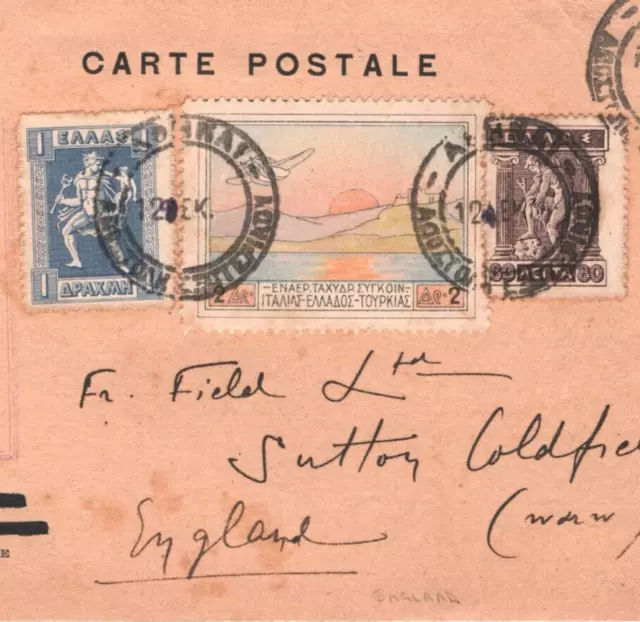 CARTE POSTALE
1 ΕΛΛΑΣ 1
1 ΔΡΑΧΜΗ
ΕΝΑΕΡ. ΤΑΧΥΔΡ. ΣΥΓΚΟΙΝ.
2 Δρ. ΙΤΑΛΙΑΣ-ΕΛΛΑΔΟΣ-ΤΟΥΡΚΙΑΣ Δρ. 2
ΕΛΛΑΣ
80 ΛΕΠΤΑ 80
ΑΘΗΝΑΙ
12 ΔΕΚ.
Fr. Field Ltd
Sutton Coldfie
(warw
England
E
ENGLAND